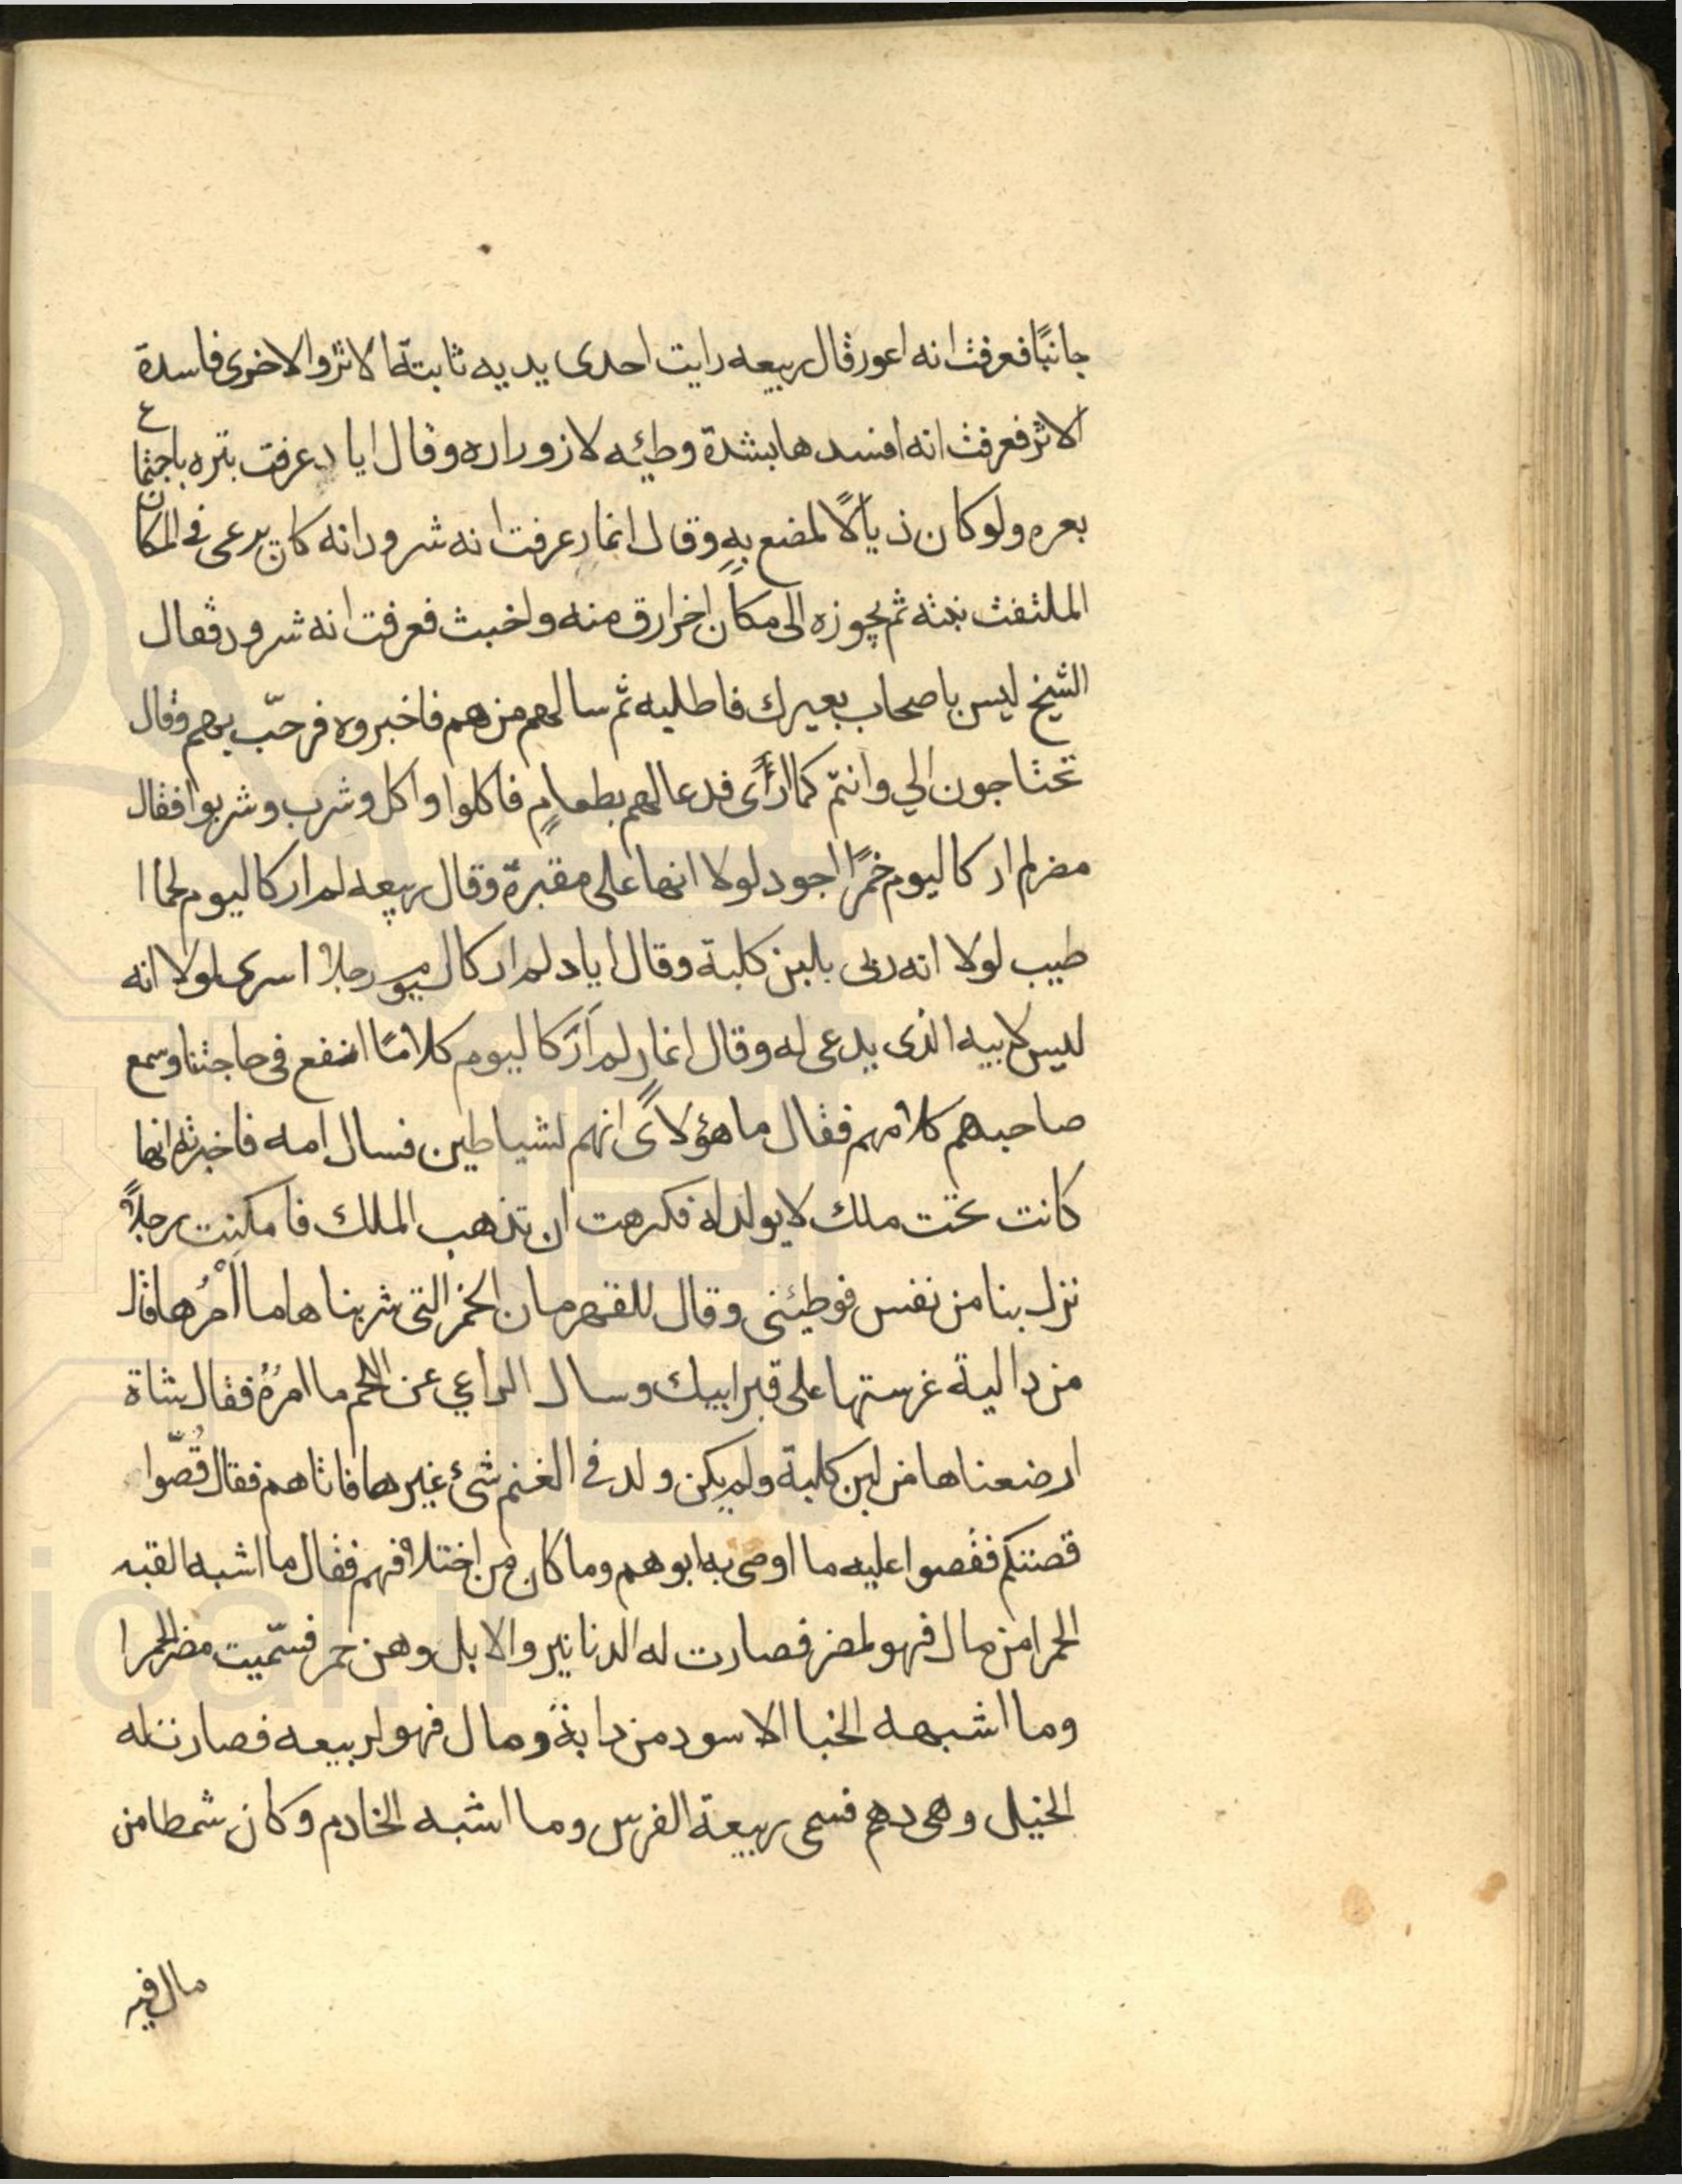 جانبًا فعرفت انه اعور وقال ربيعه رايت احدى يديه ثابتة الاثر والاخرى فاسدة
الاثر فعرفت انه افسدها بشدة وطئه لازوراره وقال اياد عرفت بتره باجتماع
بعره ولو كان ذيالًا لمضع بهِ وقال انمار عرفت انه شرود انه كان يرعى فى المكان
الملتفت نبته ثم يجوزه الى مكان اخر ارق منه واخبث فعرفت انه شرود فقال
الشيخ ليس باصحاب بعيرك فاطلبه ثم سالهم من هم فاخبروه فرحّب بهم وقال
تحتاجون الي وانتم كما ارًاى فدعا لهم بطعامٍ فاكلوا واكل وشرب وشربوا فقال
مضر لم ار كاليوم خمرًا اجود لولا انها على مقبرة وقال ربيعه لم ار كاليوم لحما ا
طيب لولا انه ربى بلبن كلبة وقال اياد لم ار كاليوم رجلا اسرى لولا انه
ليس لابيه الذى يدعى له وقال انمار لم اَرَ كاليوم كلامًا انفع فى حاجتنا وسمع
صاحبهم كلامهم فقال ما هؤلاًى انهم لشياطين فسال امه فاخبرته انها
كانت تحت ملك لا يولد له فكرهت ان تذهب الملك فامكنت رجلاً
نزل بنا من نفس فوطيئنى وقال للقهرمان الخمر التى شربناها ما اَمْرُها قال
من دالية غرستها على قبر ابيك وسال الراعي عن اللحم ما امرُهُ فقال شاة
ارضعناها من لبن كلبة ولم يكن ولد فى الغنم شئ غيرها فاتاهم فقال قُصّوا
قصتكم فقصوا عليه ما اوصى به ابوهم وما كان من اختلافهم فقال ما اشبه القبه
الحمرا من مال فهو لمضر فصارت له الدنانير والابل وهن حمر فسّميت مضر الحمرا
وما اشبهه الخبا الاسود من دابة ومال فهو لربيعه فصارت له
الخيل وهى دهم فسمى ربيعة الفرس وما اشبه الخادم وكان شمطا من
مال فيه